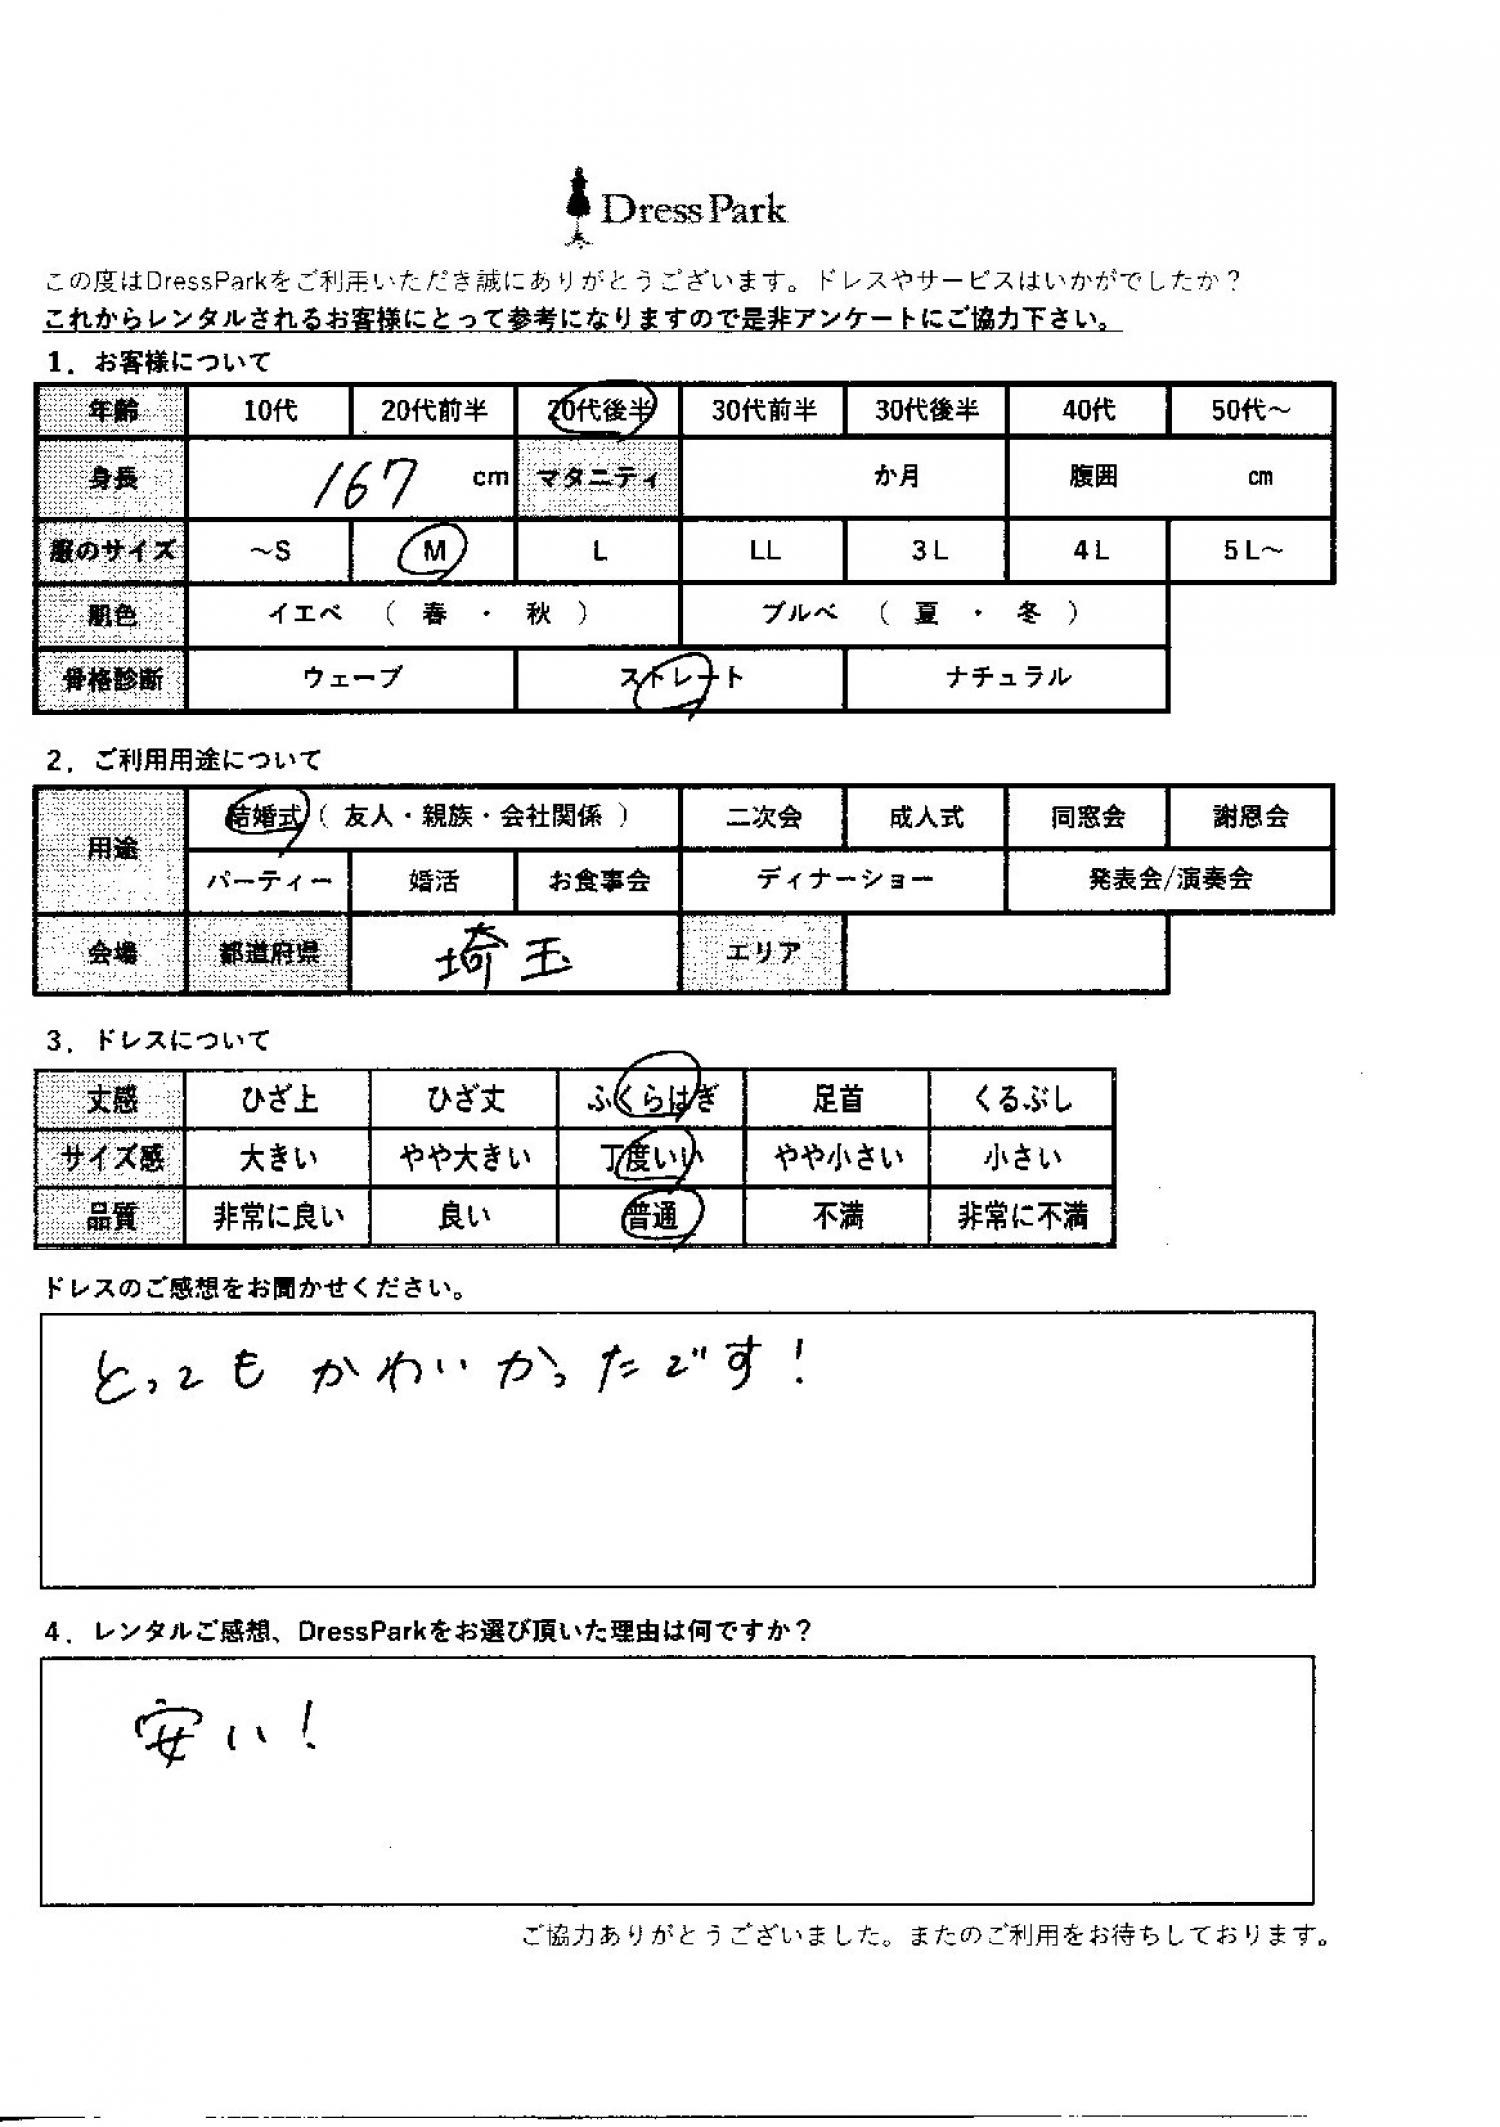 DressPark
この度はDressParkをご利用いただき誠にありがとうございます。ドレスやサービスはいかがでしたか？
これからレンタルされるお客様にとって参考になりますので是非アンケートにご協力下さい。
1．お客様について
年齢 10代 20代前半 20代後半 30代前半 30代後半 40代 50代～
身長 167 cm マタニティ か月 腹囲 cm
服のサイズ ～S M L LL 3L 4L 5L～
肌色 イエベ （ 春 ・ 秋 ） ブルベ （ 夏 ・ 冬 ）
骨格診断 ウェーブ ストレート ナチュラル
2．ご利用用途について
用途 結婚式（ 友人・親族・会社関係 ） 二次会 成人式 同窓会 謝恩会
パーティー 婚活 お食事会 ディナーショー 発表会/演奏会
会場 都道府県 埼玉 エリア
3．ドレスについて
丈感 ひざ上 ひざ丈 ふくらはぎ 足首 くるぶし
サイズ感 大きい やや大きい 丁度いい やや小さい 小さい
品質 非常に良い 良い 普通 不満 非常に不満
ドレスのご感想をお聞かせください。
とってもかわいかったです！
4．レンタルご感想、DressParkをお選び頂いた理由は何ですか？
安い！
ご協力ありがとうございました。またのご利用をお待ちしております。